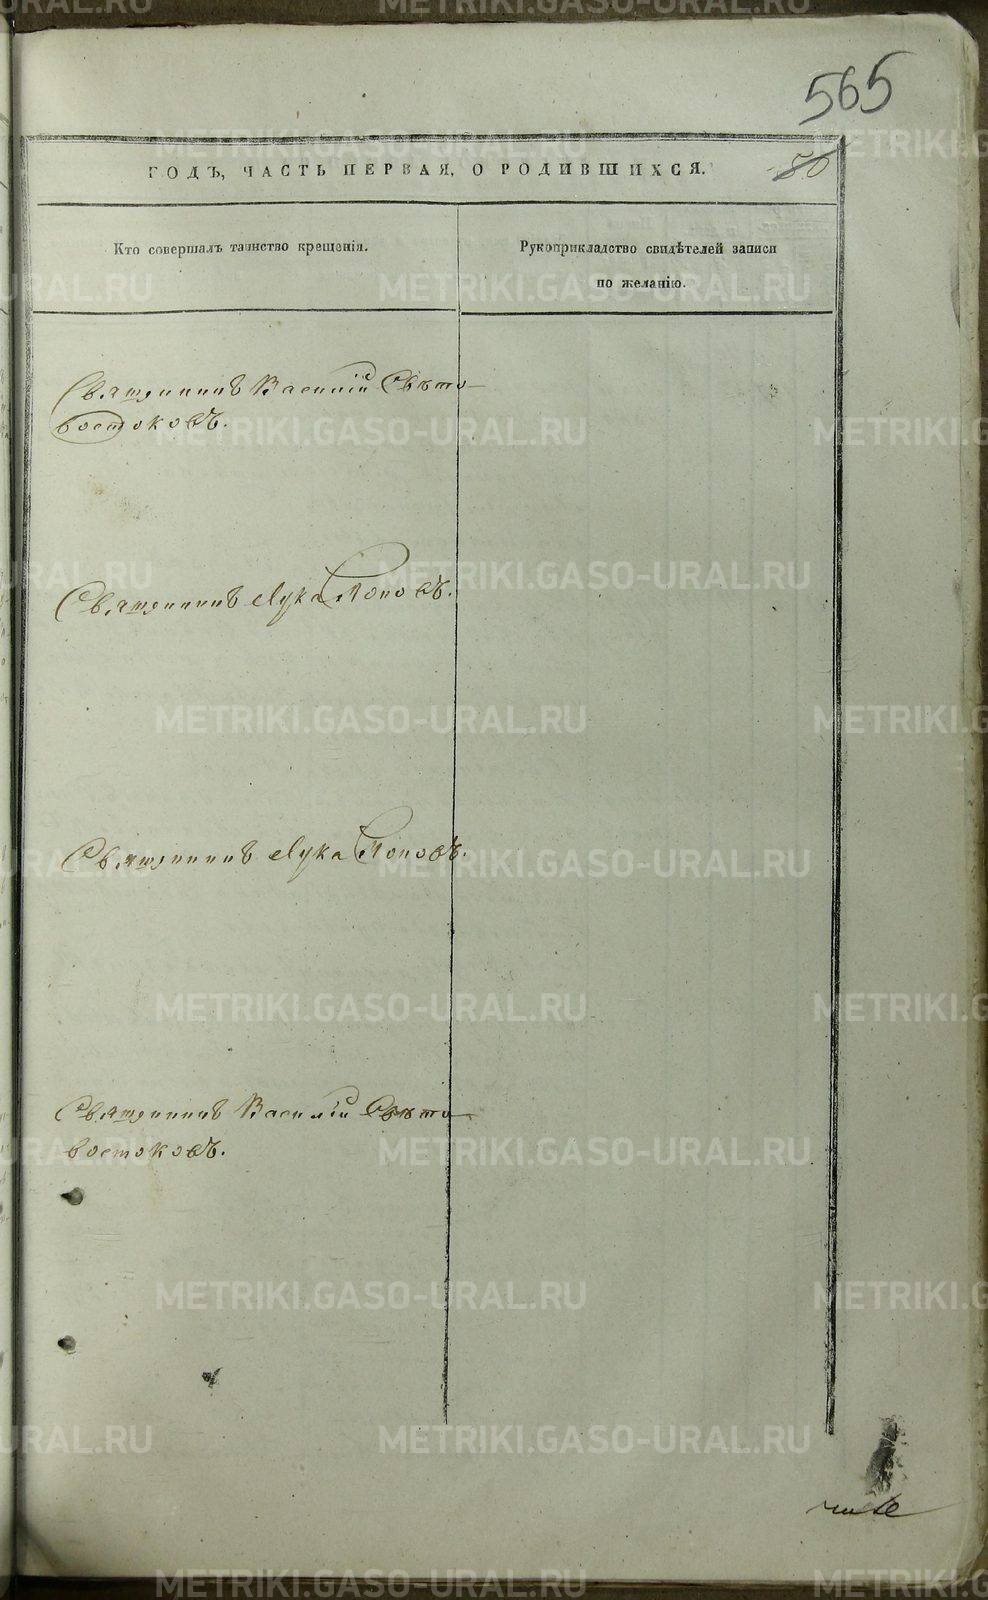 565
ГОДЪ, ЧАСТЬ ПЕРВАЯ, О РОДИВШИХСЯ.
80
Кто совершалъ таинство крещенія.
Рукоприкладство свидѣтелей записи
по желанію.
Священникъ Василій Свѣто-
востоковъ.
Священникъ Лука Поповъ.
Священникъ Лука Поповъ.
Священникъ Василій Свѣто-
востоковъ.
METRIKI.GASO-URAL.RU